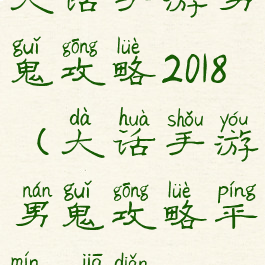 大话手游男
guǐ gōng lüè
鬼攻略2018
dà huà shǒu yóu
(大话手游
nán guǐ gōng lüè píng
男鬼攻略平
mín jiǔ diǎn